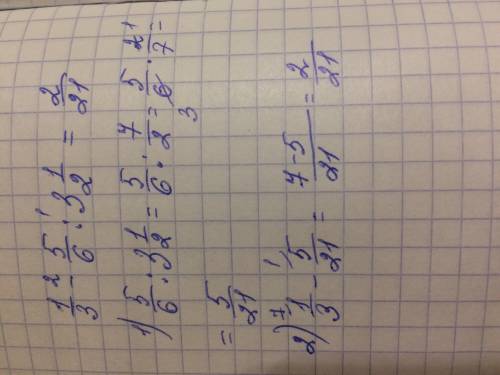 1/3 ² - 5/6 ¹ : 3 1/2 = 2/21
1) 5/6 : 3 1/2 = 5/6 : 7/2 = 5/6 3 · 2 ¹/7 =
= 5/21
2) 1/3 ⁷ - 5/21 ¹ = 7-5/21 = 2/21